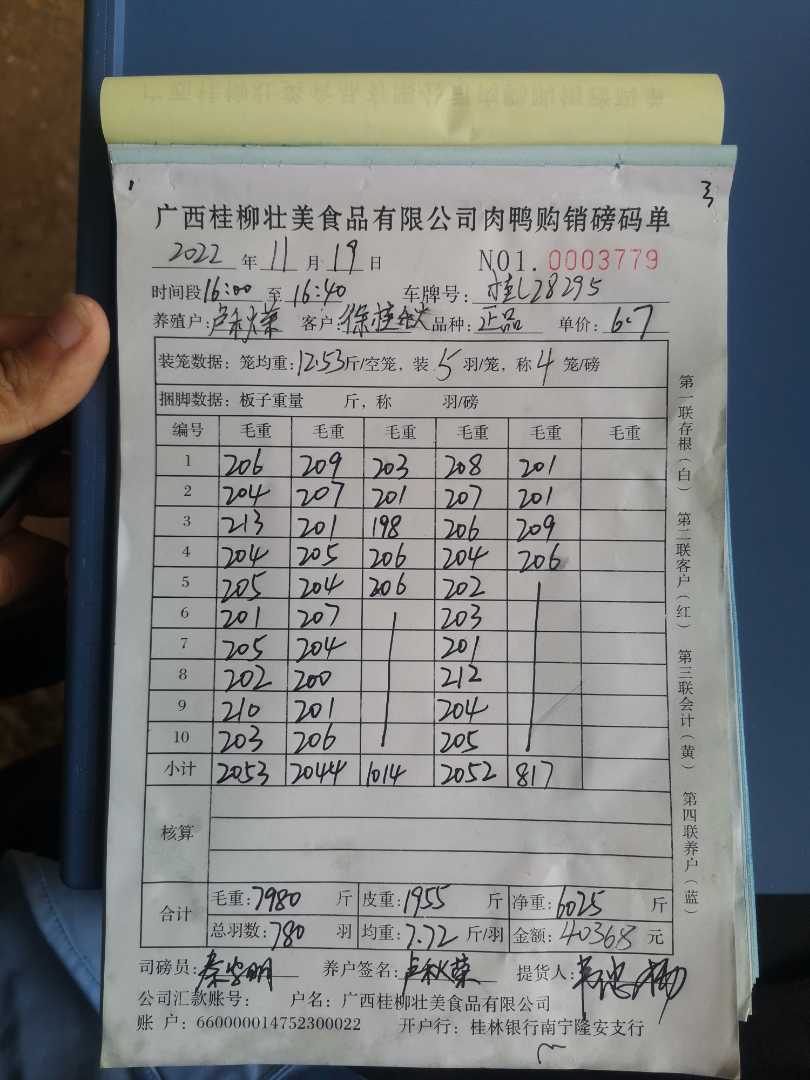 3
广西桂柳壮美食品有限公司肉鸭购销磅码单
2022 年 11 月 19 日 NO1. 0003779
时间段 16:00 至 16:40 车牌号: 桂L28295
养殖户: 卢秋荣 客户: 徐桂 品种: 正品 单价: 6.7
装笼数据: 笼均重: 12.53 斤/空笼, 装 5 羽/笼, 称 4 笼/磅
捆脚数据: 板子重量 斤, 称 羽/磅
编号 毛重 毛重 毛重 毛重 毛重 毛重
1 206 209 203 208 201
2 204 207 201 207 201
3 213 201 198 206 209
4 204 205 206 204 206
5 205 204 206 202
6 201 207 203
7 205 204 201
8 202 200 212
9 210 201 204
10 203 206 205
小计 2053 2044 1014 2052 817
核算
合计 毛重: 7980 斤 皮重: 1955 斤 净重: 6025 斤
总羽数: 780 羽 均重: 7.72 斤/羽 金额: 40368 元
司磅员: 养户签名: 卢秋荣 提货人:
公司汇款账号: 户名: 广西桂柳壮美食品有限公司
账 户: 660000014752300022 开户行: 桂林银行南宁隆安支行
第一联存根(白) 第二联客户(红) 第三联会计(黄) 第四联养户(蓝)